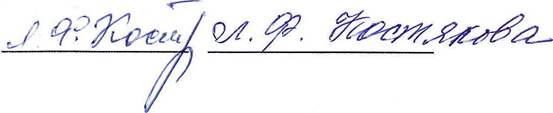 Л.Ф. Кост Л. Ф. Костякова